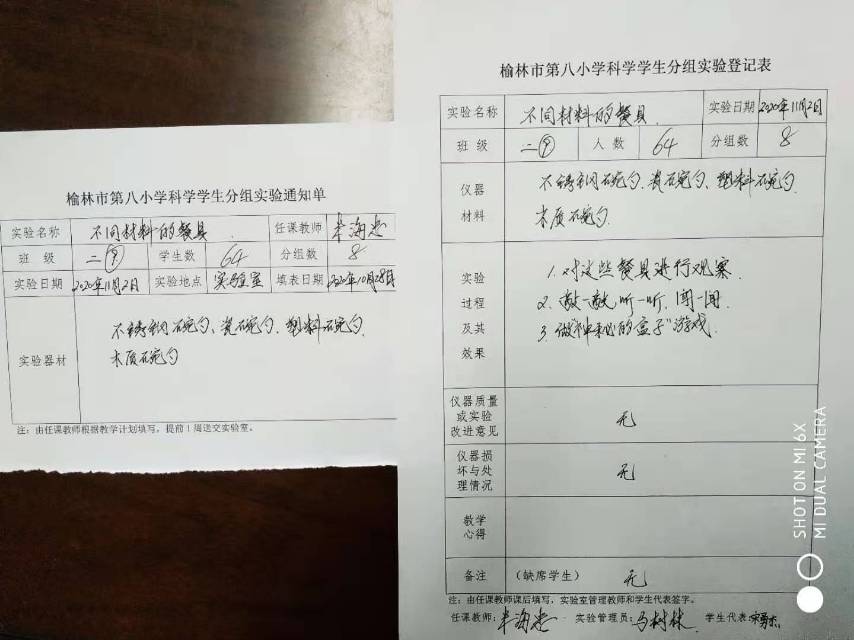 榆林市第八小学科学学生分组实验通知单
实验名称 不同材料的餐具 任课教师
班 级 二 学生数 64 分组数 8
实验日期 2020年11月2日 实验地点 实验室 填表日期 2020年10月28日
实验器材
不锈钢碗勺、瓷碗勺、塑料碗勺
木质碗勺
注：由任课教师根据教学计划填写，提前1周送交实验室。
榆林市第八小学科学学生分组实验登记表
实验名称 不同材料的餐具 实验日期 2020年11月2日
班 级 二 人 数 64 分组数 8
仪器
材料
不锈钢碗勺、瓷碗勺、塑料碗勺
木质碗勺
实验
过程
及其
效果
1. 对这些餐具进行观察
2. 敲一敲,听一听,闻一闻.
3. 做"神秘的盒子"游戏
仪器质量
或实验
改进意见
无
仪器损
坏与处
理情况
无
教学
心得
备注 （缺席学生） 无
注：由任课教师课后填写，实验室管理教师和学生代表签字。
任课教师: 实验管理员: 马树林 学生代表:
SHOT ON MI 6X
MI DUAL CAMERA